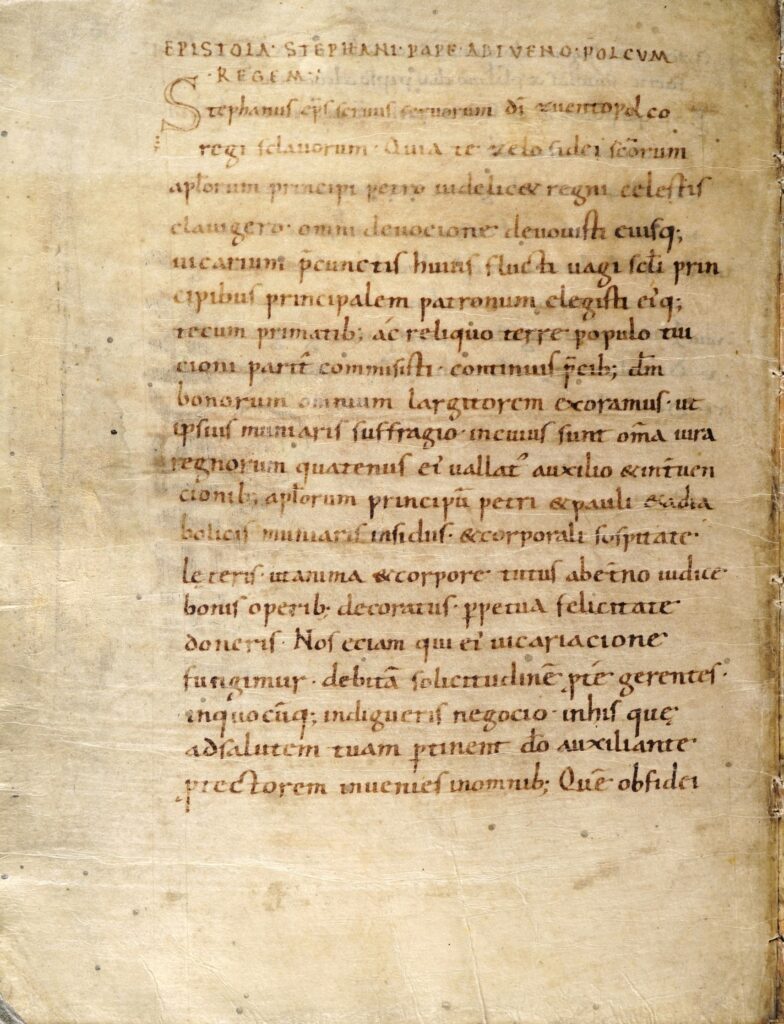 EPISTOLA · STEPHANI · PAPE · AD ZVENO · POLCUM
· REGEM ·
Stephanus ep̄s seruus seruorum dī zuentopolco
regi sclauorum · Quia te zelo fidei sc̄orum
apl̄orum principi petro uidelic& regni celestis
clauigero · omni deuocione deuouisti eiusq;
uicarium p̄cunctis huius fluctiuagi scl̄i prin
cipibus principalem patronum elegisti ei'q;
tecum primatib; ac reliquo terre populo tui
cioni parit̄ commisisti · continuis p̄cib; dm̄
bonorum omnium largitorem exoramus · ut
ipsius muniaris suffragio · incuius sunt om̄a iura
regnorum quatenus ei' uallat' auxilio & int̄uen
cionib; apl̄orum principū petri & pauli & adia
bolicis muniaris insidiis · & corporali sospitate ·
leteris · utanima & corpore · tutus abet̄no iudice ·
bonis operib; decoratus · ꝑpetua felicitate
doneris · Nos eciam qui ei' uicariacione
fungimur · debitā solicitudinē ꝑte gerentes ·
inquocūq; indigueris negocio · inhis quę
adsalutem tuam ꝑtinent dō auxiliante
ꝓtectorem inuenies inomnib; Quē obfidei